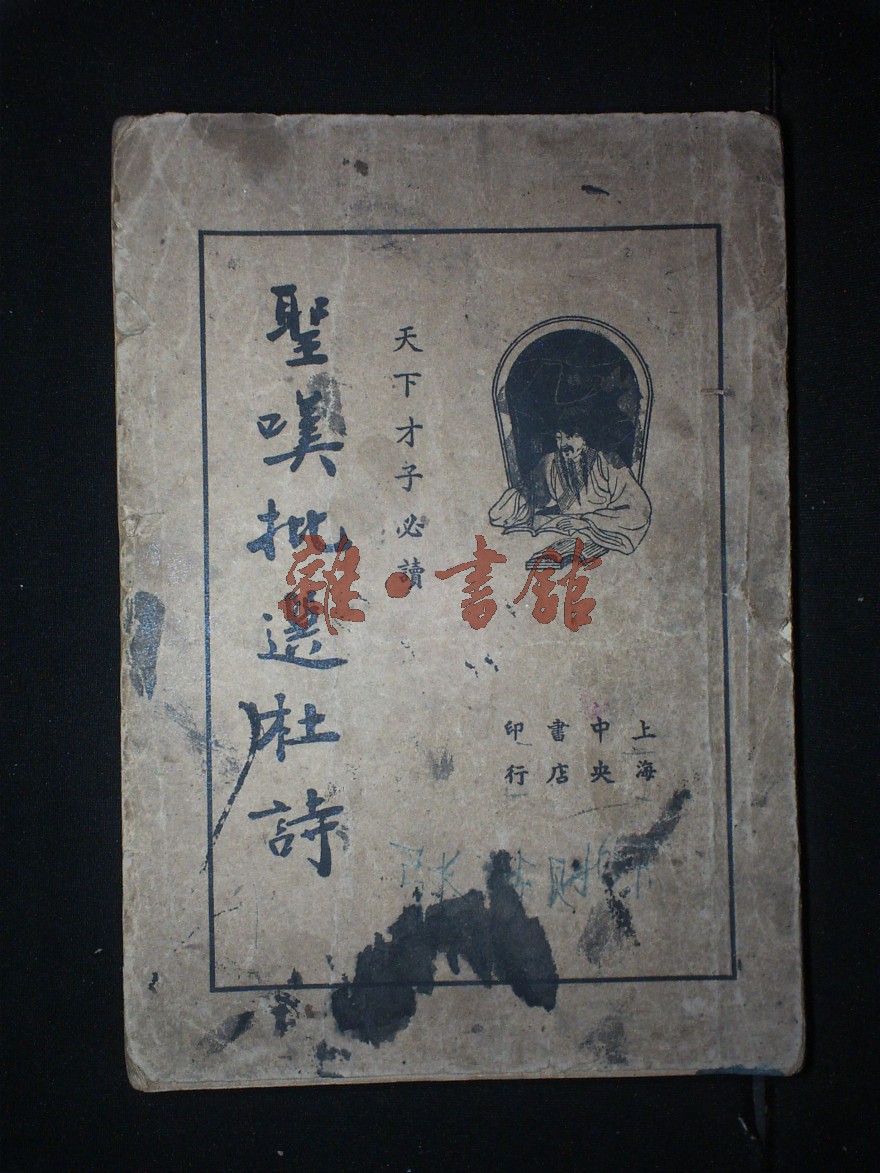 上海
中央
書店
印行
天下才子必讀
聖嘆批選杜詩
雜·書館